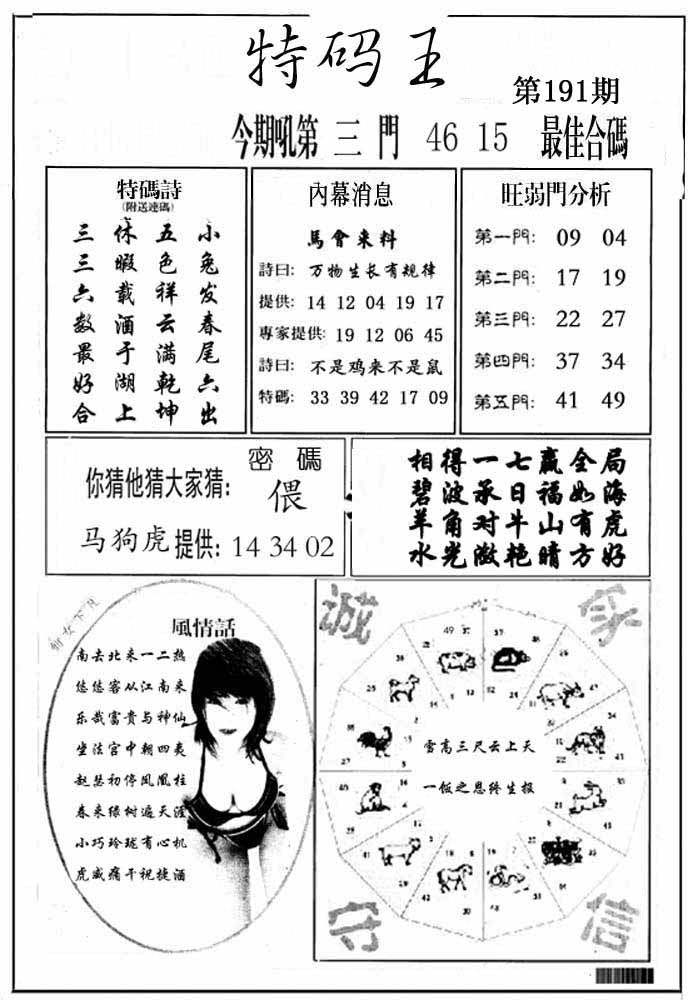 特码王
第191期
今期吼第 三 門 46 15 最佳合碼
特碼詩
(附送連碼)
小兔发春尾六出
五色祥云满乾坤
休暇载酒于湖上
三三六数最好合
內幕消息
馬會来料
詩曰: 万物生长有规律
提供: 14 12 04 19 17
專家提供: 19 12 06 45
詩曰: 不是鸡来不是鼠
特碼: 33 39 42 17 09
旺弱門分析
第一門: 09 04
第二門: 17 19
第三門: 22 27
第四門: 37 34
第五門: 41 49
密碼
你猜他猜大家猜: 偎
马狗虎提供: 14 34 02
相得一七赢全局
碧波承日福如海
羊角对牛山有虎
水光潋艳晴方好
仙女下凡
風情話
南去北来一二热
悠悠客从江南来
乐哉富贵与神仙
坐法宫中朝四夷
赵瑟初停凤凰柱
春来绿树遍天涯
小巧玲珑有心机
虎威痛干祝捷酒
诚
家
雪高三尺云上天
一饭之恩终生报
守
信